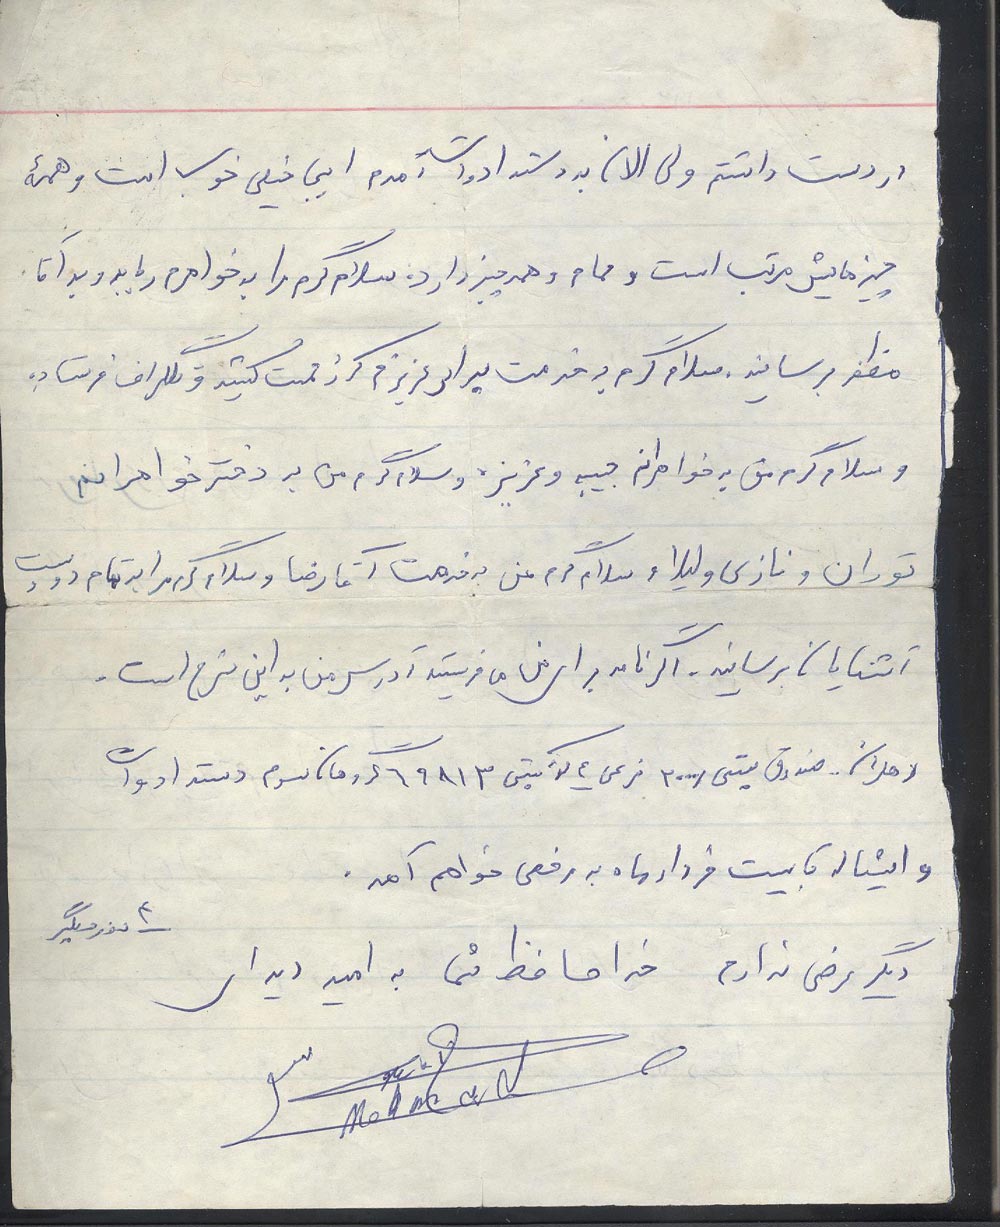 در دست داشتم ولی الان به دسته ادوات آمدم اینجا خیلی خوب است و همهٔ
چیزهایش مرتب است و حمام و همه چیز دارد. سلام گرم مرا به خواهرم ربابه و به آقا
مظفر برسانید. سلام گرم به خدمت عزیزم که زحمت کشید و تلگراف فرستاد.
و سلام گرم من به خواهرانم حبیبه و عزیزه و سلام گرم من به دختر خواهرانم
توران و نازی و لیلا و سلام گرم من به خدمت آقا رضا و سلام گرم مرا به تمام دوست
آشنایان برسانید. اگر نامه برای من می فرستید آدرس من به این شرح است.
صندوق پستی فرعی کد پستی ۶۹۸۱۳ گردان سوم دسته ادوات
و ایشاله تا بیست خرداد ماه به مرخصی خواهم آمد.
۴ نفر دیگر
دیگر عرضی ندارم خداحافظ شما به امید دیدار